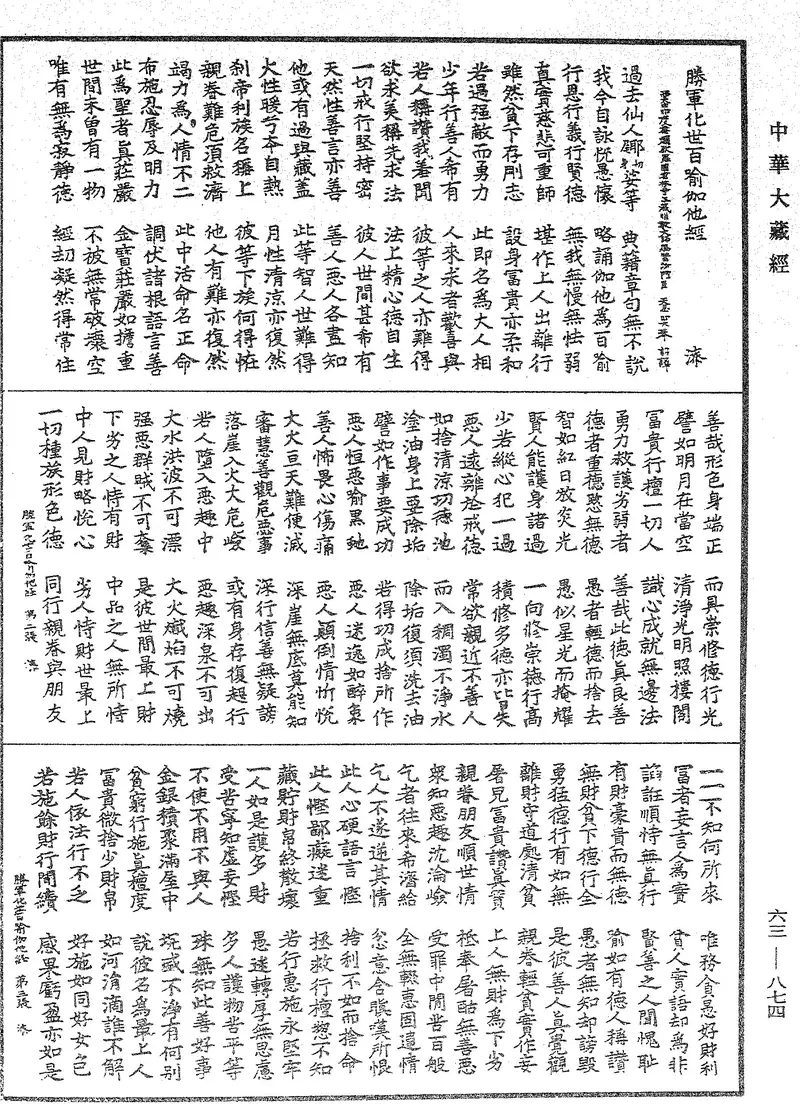 中華大藏經
勝軍化世百喻伽他經 㳙
過去仙人䣛娑等 典籍章句無不說
我今自詠悦愚懷 略誦伽他為百喻
行恩行義行賢德 無我無慢無怯弱
真實慈悲可重師 堪作上人出離行
雖然貧下存剛志 設身冨貴亦柔和
若遇强敵而勇力 此即名為大人相
少年行善人希有 人來求者歡喜與
若人稱讚我羞聞 彼等之人亦難得
欲求美稱先求法 法上精心德自生
一切戒行堅持密 彼人世間甚希有
天然性善言亦善 善人惡人各盡知
他或有過與藏蓋 此等智人世難得
火性暖兮本自熱 月性清涼亦復然
刹帝利族名稱上 彼等下族何得恠
親眷難危須救濟 他人有難亦復然
竭力為人情不二 此中活命名正命
布施忍辱及明力 調伏諸根語言善
此為聖者真莊嚴 金寶莊嚴如擔重
世間未曾有一物 不被無常破壞空
唯有無為寂靜德 經劫凝然得常住
善哉形色身端正 而具崇修德行光
譬如明月在當空 清淨光明照樓閣
冨貴行檀一切人 識心成就無邊法
勇力救護劣弱者 善哉此德真良善
德者重德愍無德 愚者輕德而捨去
智如紅日放炎光 愚似星光而掩耀
賢人能護身諸過 一向修崇德行高
少若縱心犯一過 積修多德亦皆失
惡人遠離於戒德 常欲親近不善人
如捨清涼功德池 而入稠濁不淨水
塗油身上要除垢 除垢復須洗去油
譬如作事要成功 若得功成捨所作
惡人恒惡喻黑虵 惡人迷逸如醉象
善人怖畏心傷痛 惡人顛倒情忻悦
大火亘天難便滅 深崖無底莫能知
審慧善觀危惡事 深行信善無疑謗
落崖入火大危嶮 或有身存復起行
若人墮入惡趣中 惡趣深泉不可出
大水洪波不可漂 大火熾焰不可燒
强惡群賊不可奪 是彼世間最上財
下劣之人恃有財 中品之人無所恃
中人見財略悦心 劣人恃財世最上
一切種族形色德 同行親眷與朋友
勝軍化世百喻伽他經 第二張 㳙
一一不知何所來 唯務貪愚好財利
冨者妄言人為實 貧人實語却為非
諂誑順恃無真行 賢善之人聞愧耻
有財豪貴而無德 喻如有德人稱讚
無財貧下德行全 愚者無知却謗毀
勇猛德行有如無 是彼善人真覺觀
離財守道處清貧 親眷輕貧實作妄
屠兒冨貴讚真實 上人無財為下劣
親眷朋友順世情 祗奉屠酤無善惡
衆知惡趣沈淪嶮 受罪中間苦百般
乞者往來希濟給 全無輟惠固遺情
乞人不遂逆其情 忿意含瞋嘆所恨
此人心硬語言慳 捨利不如而捨命
此人慳鄙癡迷重 拯救行檀惣不知
藏貯財帛終散壞 若行惠施永堅牢
一人如是護多財 愚迷轉厚無思慮
受苦寧知虛妄慳 多人護物皆平等
不使不用不與人 殊無知此善好事
金銀積聚滿屋中 坑或不淨有何別
貧窮行施真檀度 說彼名為最上人
冨貴微捨少財帛 如河淯滴誰不解
若人依法行不乏 好施如同好女色
若施餘財行間續 感果虧盈亦如是
勝軍化世百喻伽他經 第三張 㳙
六三——八七四